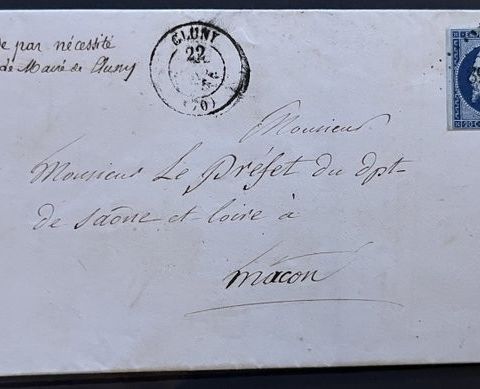 par nécessité
de Maire de Cluny
CLUNY
22
(70)
Monsieur
Monsieur Le Préfet du dpt-
de Saône et Loire à
Mâcon
20 C